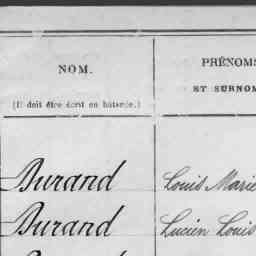 NOM.
(Il doit être écrit en bâtarde.)
PRÉNOMS
ET SURNOM
Durand Louis Marie
Durand Lucien Louis